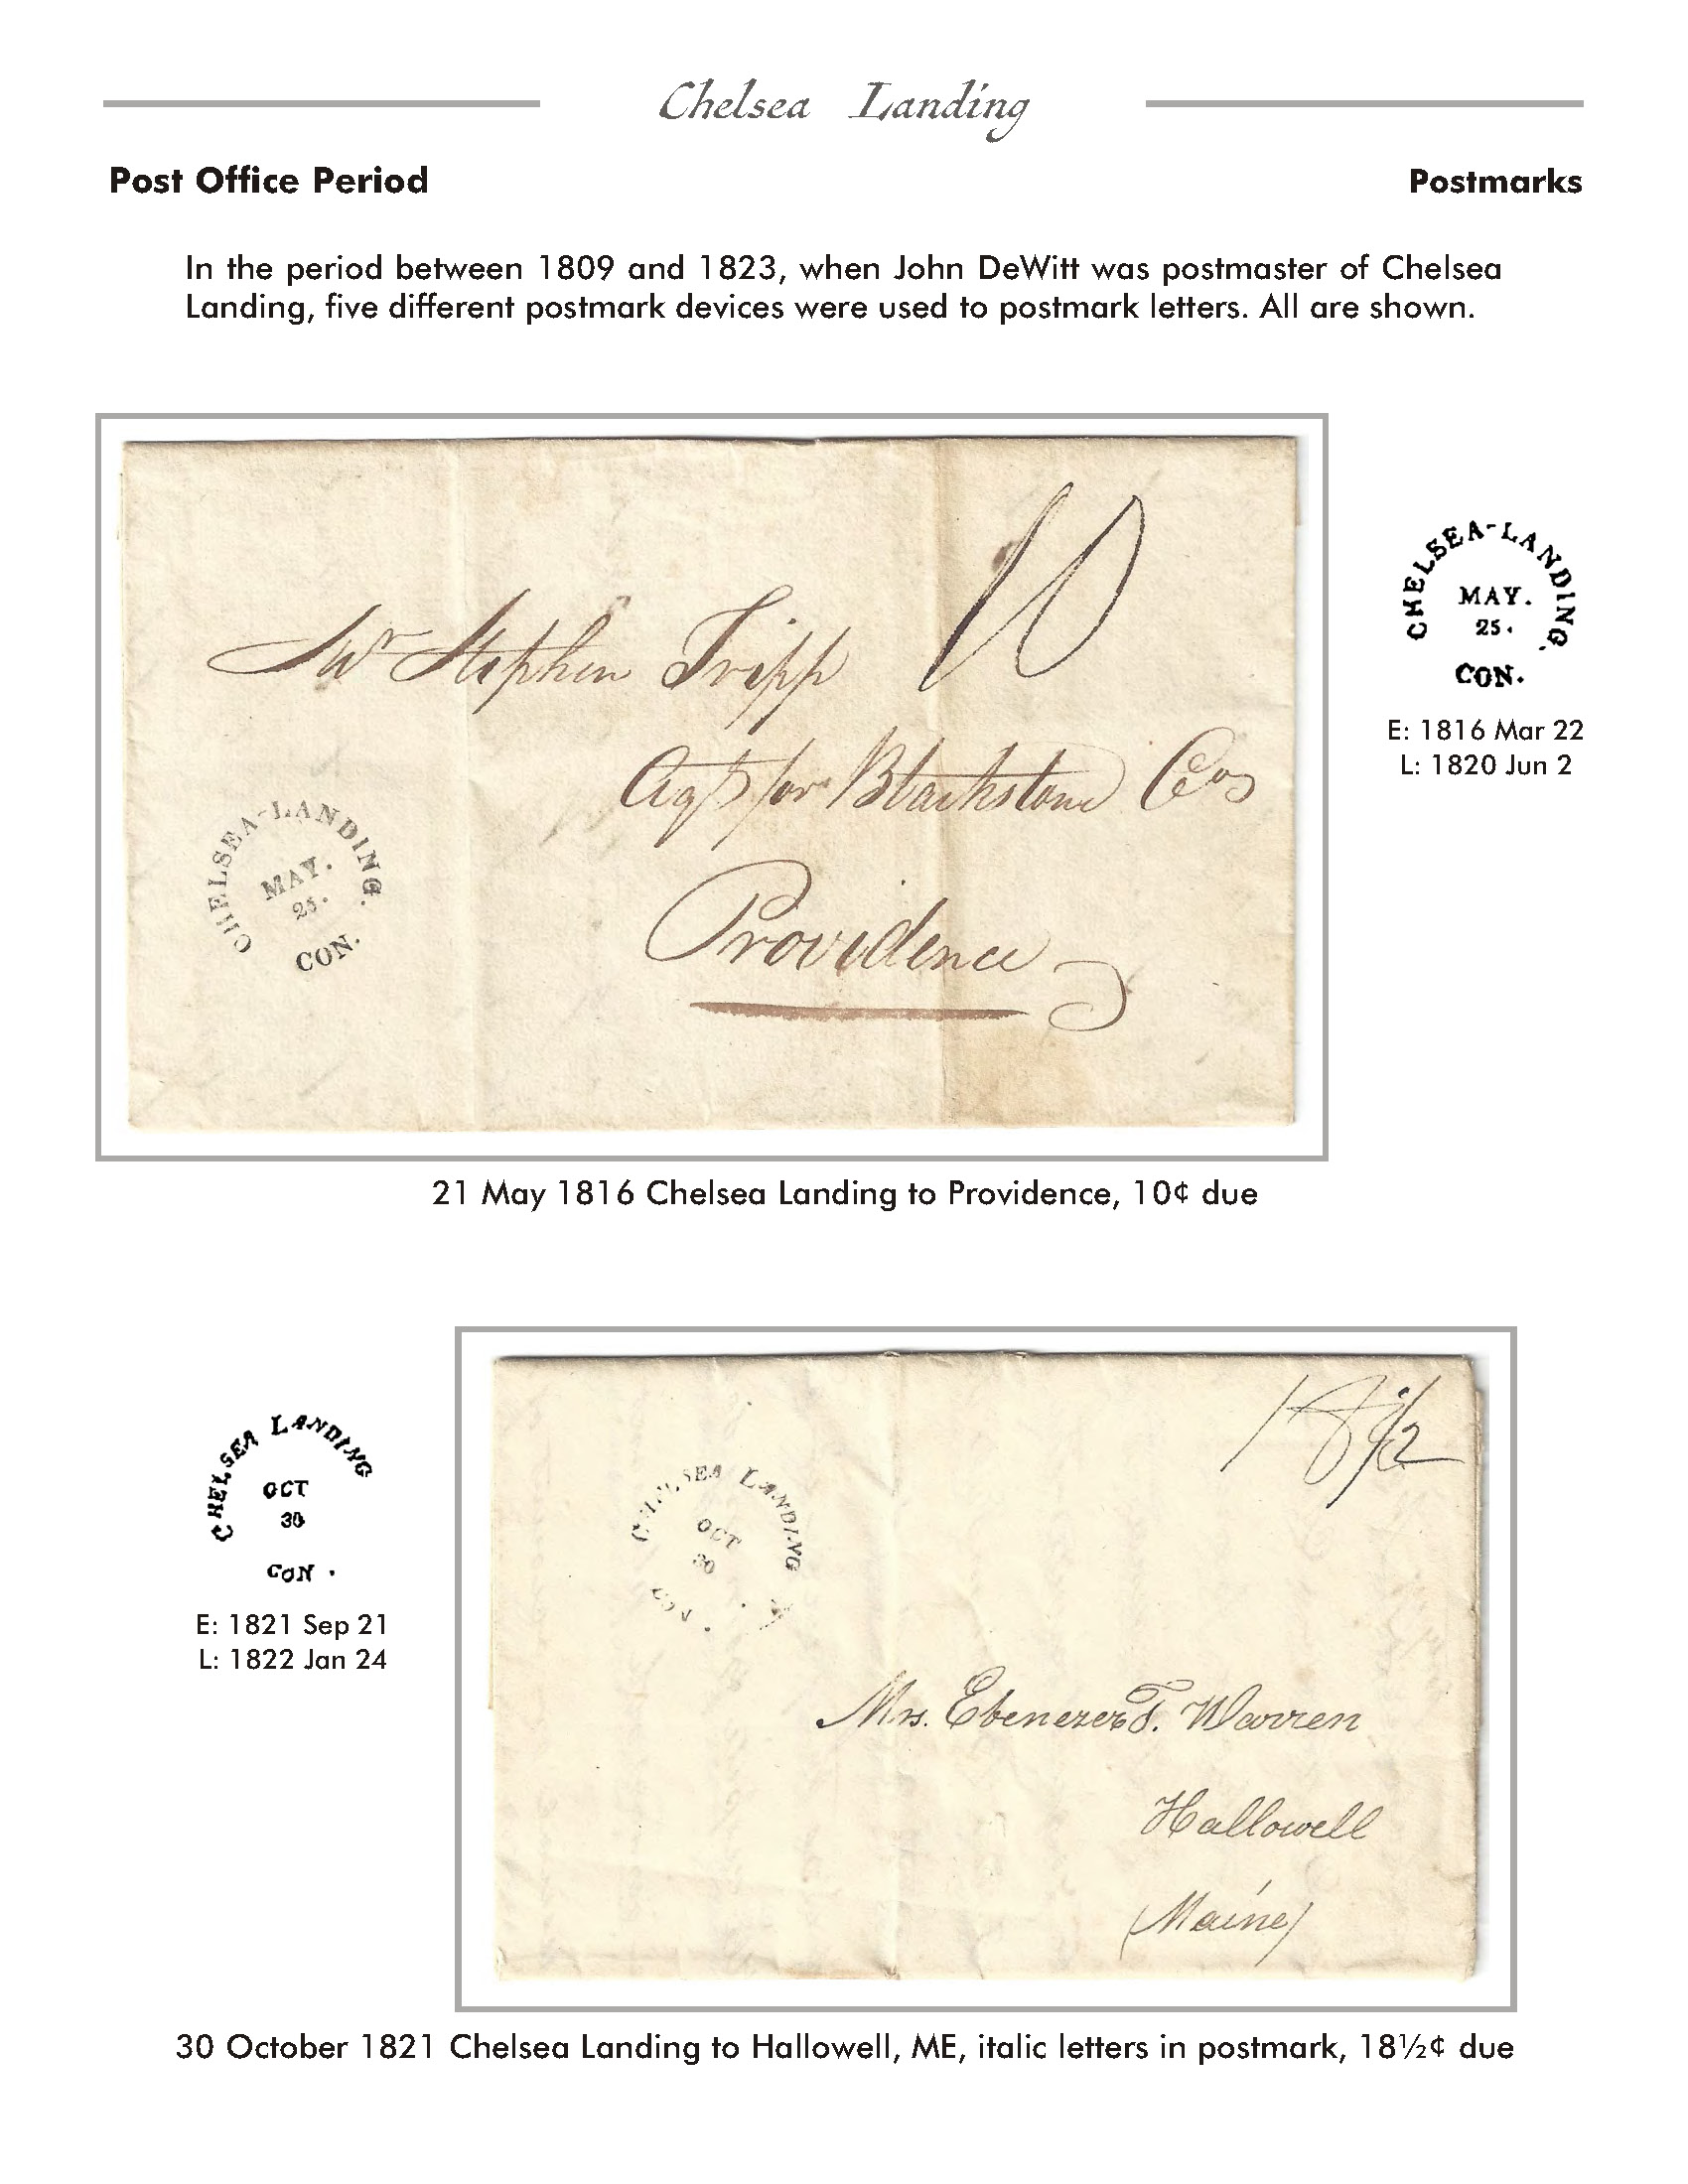 Chelsea Landing
Post Office Period
Postmarks
In the period between 1809 and 1823, when John DeWitt was postmaster of Chelsea
Landing, five different postmark devices were used to postmark letters. All are shown.
10
Mr Stephen Tripp
Agt for Blackstone Cos
Providence
CHELSEA-LANDING.
MAY.
25.
CON.
CHELSEA-LANDING.
MAY.
25.
CON.
E: 1816 Mar 22
L: 1820 Jun 2
21 May 1816 Chelsea Landing to Providence, 10¢ due
CHELSEA LANDING
OCT
30
CON.
E: 1821 Sep 21
L: 1822 Jan 24
18 1/2
CHELSEA LANDING
OCT
30
CON.
Mrs. Ebenezer T. Warren
Hallowell
(Maine)
30 October 1821 Chelsea Landing to Hallowell, ME, italic letters in postmark, 18½¢ due